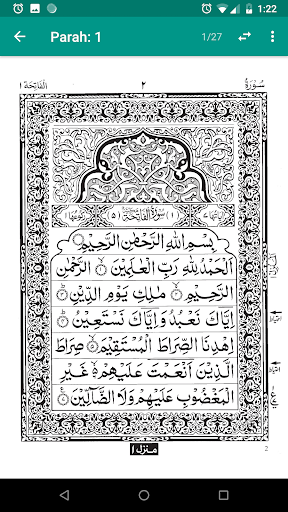 1:22
Parah: 1
1/27
الفاتحة ١
٢
سُوْرَةُ
سُوْرَةُ الْفَاتِحَةِ
بِسْمِ اللهِ الرَّحْمٰنِ الرَّحِيْمِ
اَلْحَمْدُ لِلّٰهِ رَبِّ الْعٰلَمِيْنَ ۙ﴿١﴾ الرَّحْمٰنِ
الرَّحِيْمِ ۙ﴿٢﴾ مٰلِكِ يَوْمِ الدِّيْنِ ؕ﴿٣﴾
اِيَّاكَ نَعْبُدُ وَاِيَّاكَ نَسْتَعِيْنُ ؕ﴿٤﴾
اِهْدِنَا الصِّرَاطَ الْمُسْتَقِيْمَ ۙ﴿٥﴾ صِرَاطَ
الَّذِيْنَ اَنْعَمْتَ عَلَيْهِمْ ۙ۬﴿٦﴾ غَيْرِ
الْمَغْضُوْبِ عَلَيْهِمْ وَلَا الضَّآلِّيْنَ ﴿٧﴾
منزل ١
2